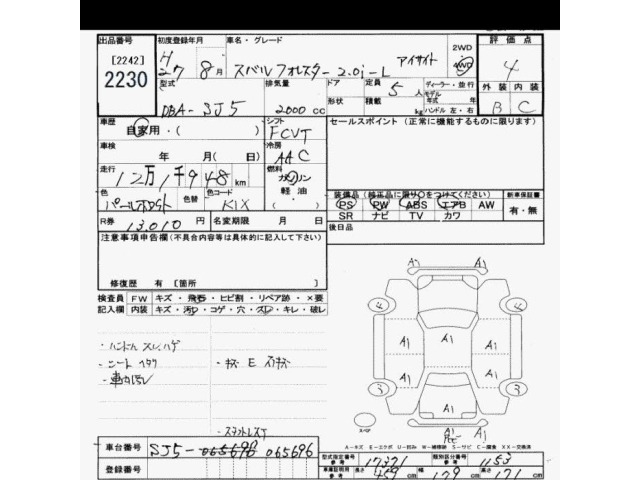 出品番号
[2242]
2230
初度登録年月
H
27 8月
車名・グレード
スバル フォレスター 2.0i-L アイサイト
2WD
4WD
評価点
4
外装 内装
B C
型式
DBA-SJ5
排気量
2000 cc
ドア
形状
定員
5 人
積載
kg
ディーラー・並行
モデル
年式 年
ハンドル 左・右
車歴
自家用・( )
シフト
FCVT
セールスポイント (正常に機能するものに限ります)
車検
年 月( 日)
冷房
AAC
走行
12万1千948 km
燃料
ガソリン
軽油
( )
色
パールホワイト
色替
色コード
K1X
装備品(検正品に限り○をつけてください)
PS PW ABS エアB AW
SR ナビ TV カワ
新車保証書
有・無
R券
13,010 円
名変期限 月 日
後日品
注意事項申告欄(不具合内容等は具体的に記入して下さい)
修復歴 有 [箇所 ]
検査員
記入欄
FW キズ・飛石・ヒビ割・リペア跡・×要
内装 キズ・汚レ・コゲ・穴・スレ・キレ・破レ
・ハンドル スレ、ハゲ
・シート ヘタリ
・車内汚レ
・キズ E
A1 A1
4 4
A1
A1 A1 A1
A1
3 3
A1
A1
スペア
A-キズ E-エクボ U-凹み W-補修跡 S-サビ C-腐食 XX-交換済
車台番号
SJ5-065696 065696
登録番号
型式指定番号
参考
17371
類別区分番号
参考
1153
車庫証明用
参考
長さ 459 cm 幅 179 cm 高さ 171 cm